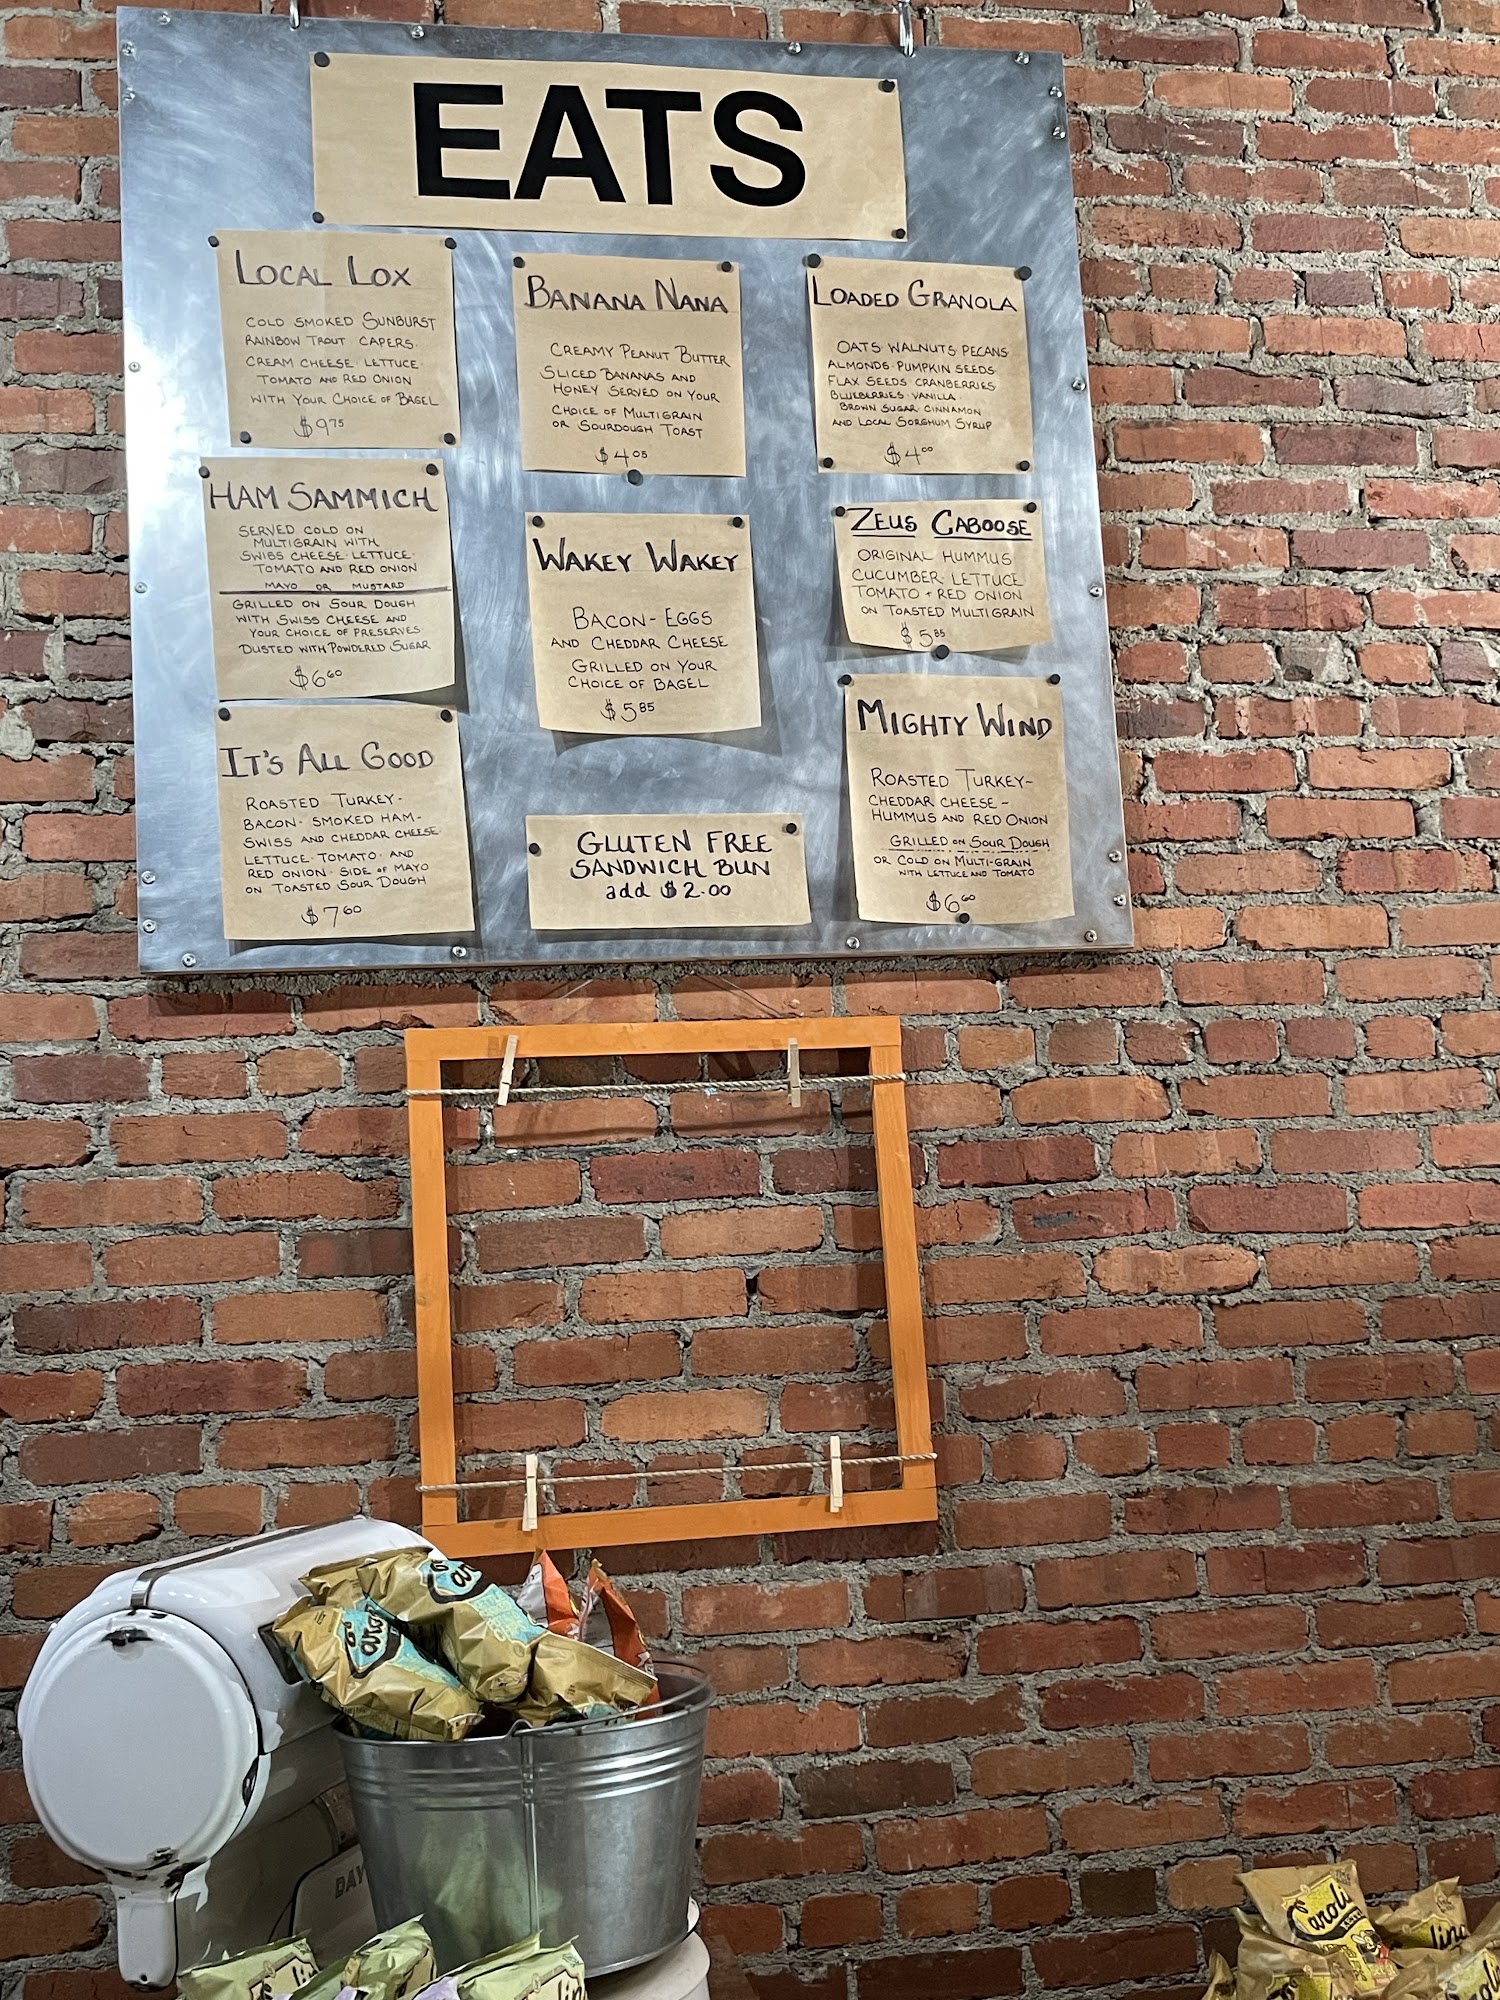 EATS
LOCAL LOX
COLD SMOKED SUNBURST
RAINBOW TROUT CAPERS
CREAM CHEESE · LETTUCE
TOMATO AND RED ONION
WITH YOUR CHOICE OF BAGEL
$9.75
BANANA NANA
CREAMY PEANUT BUTTER
SLICED BANANAS AND
HONEY SERVED ON YOUR
CHOICE OF MULTIGRAIN
OR SOURDOUGH TOAST
$4.05
LOADED GRANOLA
OATS WALNUTS PECANS
ALMONDS · PUMPKIN SEEDS
FLAX SEEDS CRANBERRIES
BLUEBERRIES · VANILLA
BROWN SUGAR CINNAMON
AND LOCAL SORGHUM SYRUP
$4.00
HAM SAMMICH
SERVED COLD ON
MULTIGRAIN WITH
SWISS CHEESE · LETTUCE ·
TOMATO AND RED ONION
MAYO OR MUSTARD
GRILLED ON SOUR DOUGH
WITH SWISS CHEESE AND
YOUR CHOICE OF PRESERVES
DUSTED WITH POWDERED SUGAR
$6.60
WAKEY WAKEY
BACON - EGGS
AND CHEDDAR CHEESE
GRILLED ON YOUR
CHOICE OF BAGEL
$5.85
ZEUS CABOOSE
ORIGINAL HUMMUS
CUCUMBER · LETTUCE
TOMATO + RED ONION
ON TOASTED MULTIGRAIN
$5.85
IT'S ALL GOOD
ROASTED TURKEY -
BACON - SMOKED HAM -
SWISS AND CHEDDAR CHEESE
LETTUCE · TOMATO · AND
RED ONION · SIDE OF MAYO
ON TOASTED SOUR DOUGH
$7.60
GLUTEN FREE
SANDWICH BUN
add $2.00
MIGHTY WIND
ROASTED TURKEY -
CHEDDAR CHEESE -
HUMMUS AND RED ONION
GRILLED ON SOUR DOUGH
OR COLD ON MULTI-GRAIN
WITH LETTUCE AND TOMATO
$6.60
DAY
Caroli